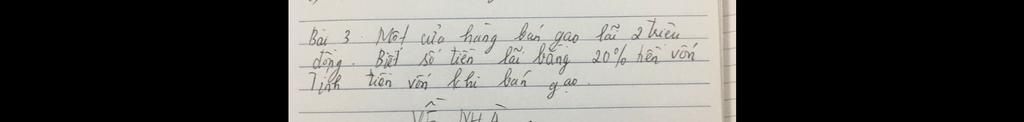 Bài 3. Một cửa hàng bán gạo lãi 2 triệu
đồng. Biết số tiền lãi bằng 20% tiền vốn
Tính tiền vốn khi bán gạo.
VỀ NHÀ